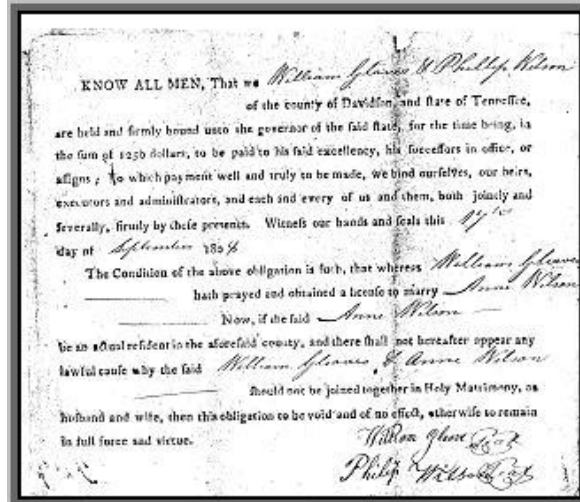 KNOW ALL MEN, That we William Gleaves & Phillip Wilson
of the county of Davidson, and state of Tennessee,
are held and firmly bound unto the governor of the said state, for the time being, in
the sum of 1250 dollars, to be paid to his said excellency, his successors in office, or
assigns; To which payment well and truly to be made, we bind ourselves, our heirs,
executors and administrators, and each and every of us and them, both jointly and
severally, firmly by these presents. Witness our hands and seals this 17th
day of September 180
The Condition of the above obligation is such, that whereas William Gleaves
hath prayed and obtained a license to marry Anne Wilson
Now, if the said Anne Wilson
be an actual resident in the aforesaid county, and there shall not hereafter appear any
lawful cause why the said William Gleaves & Anne Wilson
should not be joined together in Holy Matrimony, as
husband and wife, then this obligation to be void and of no effect, otherwise to remain
in full force and virtue.
Philip Wilson